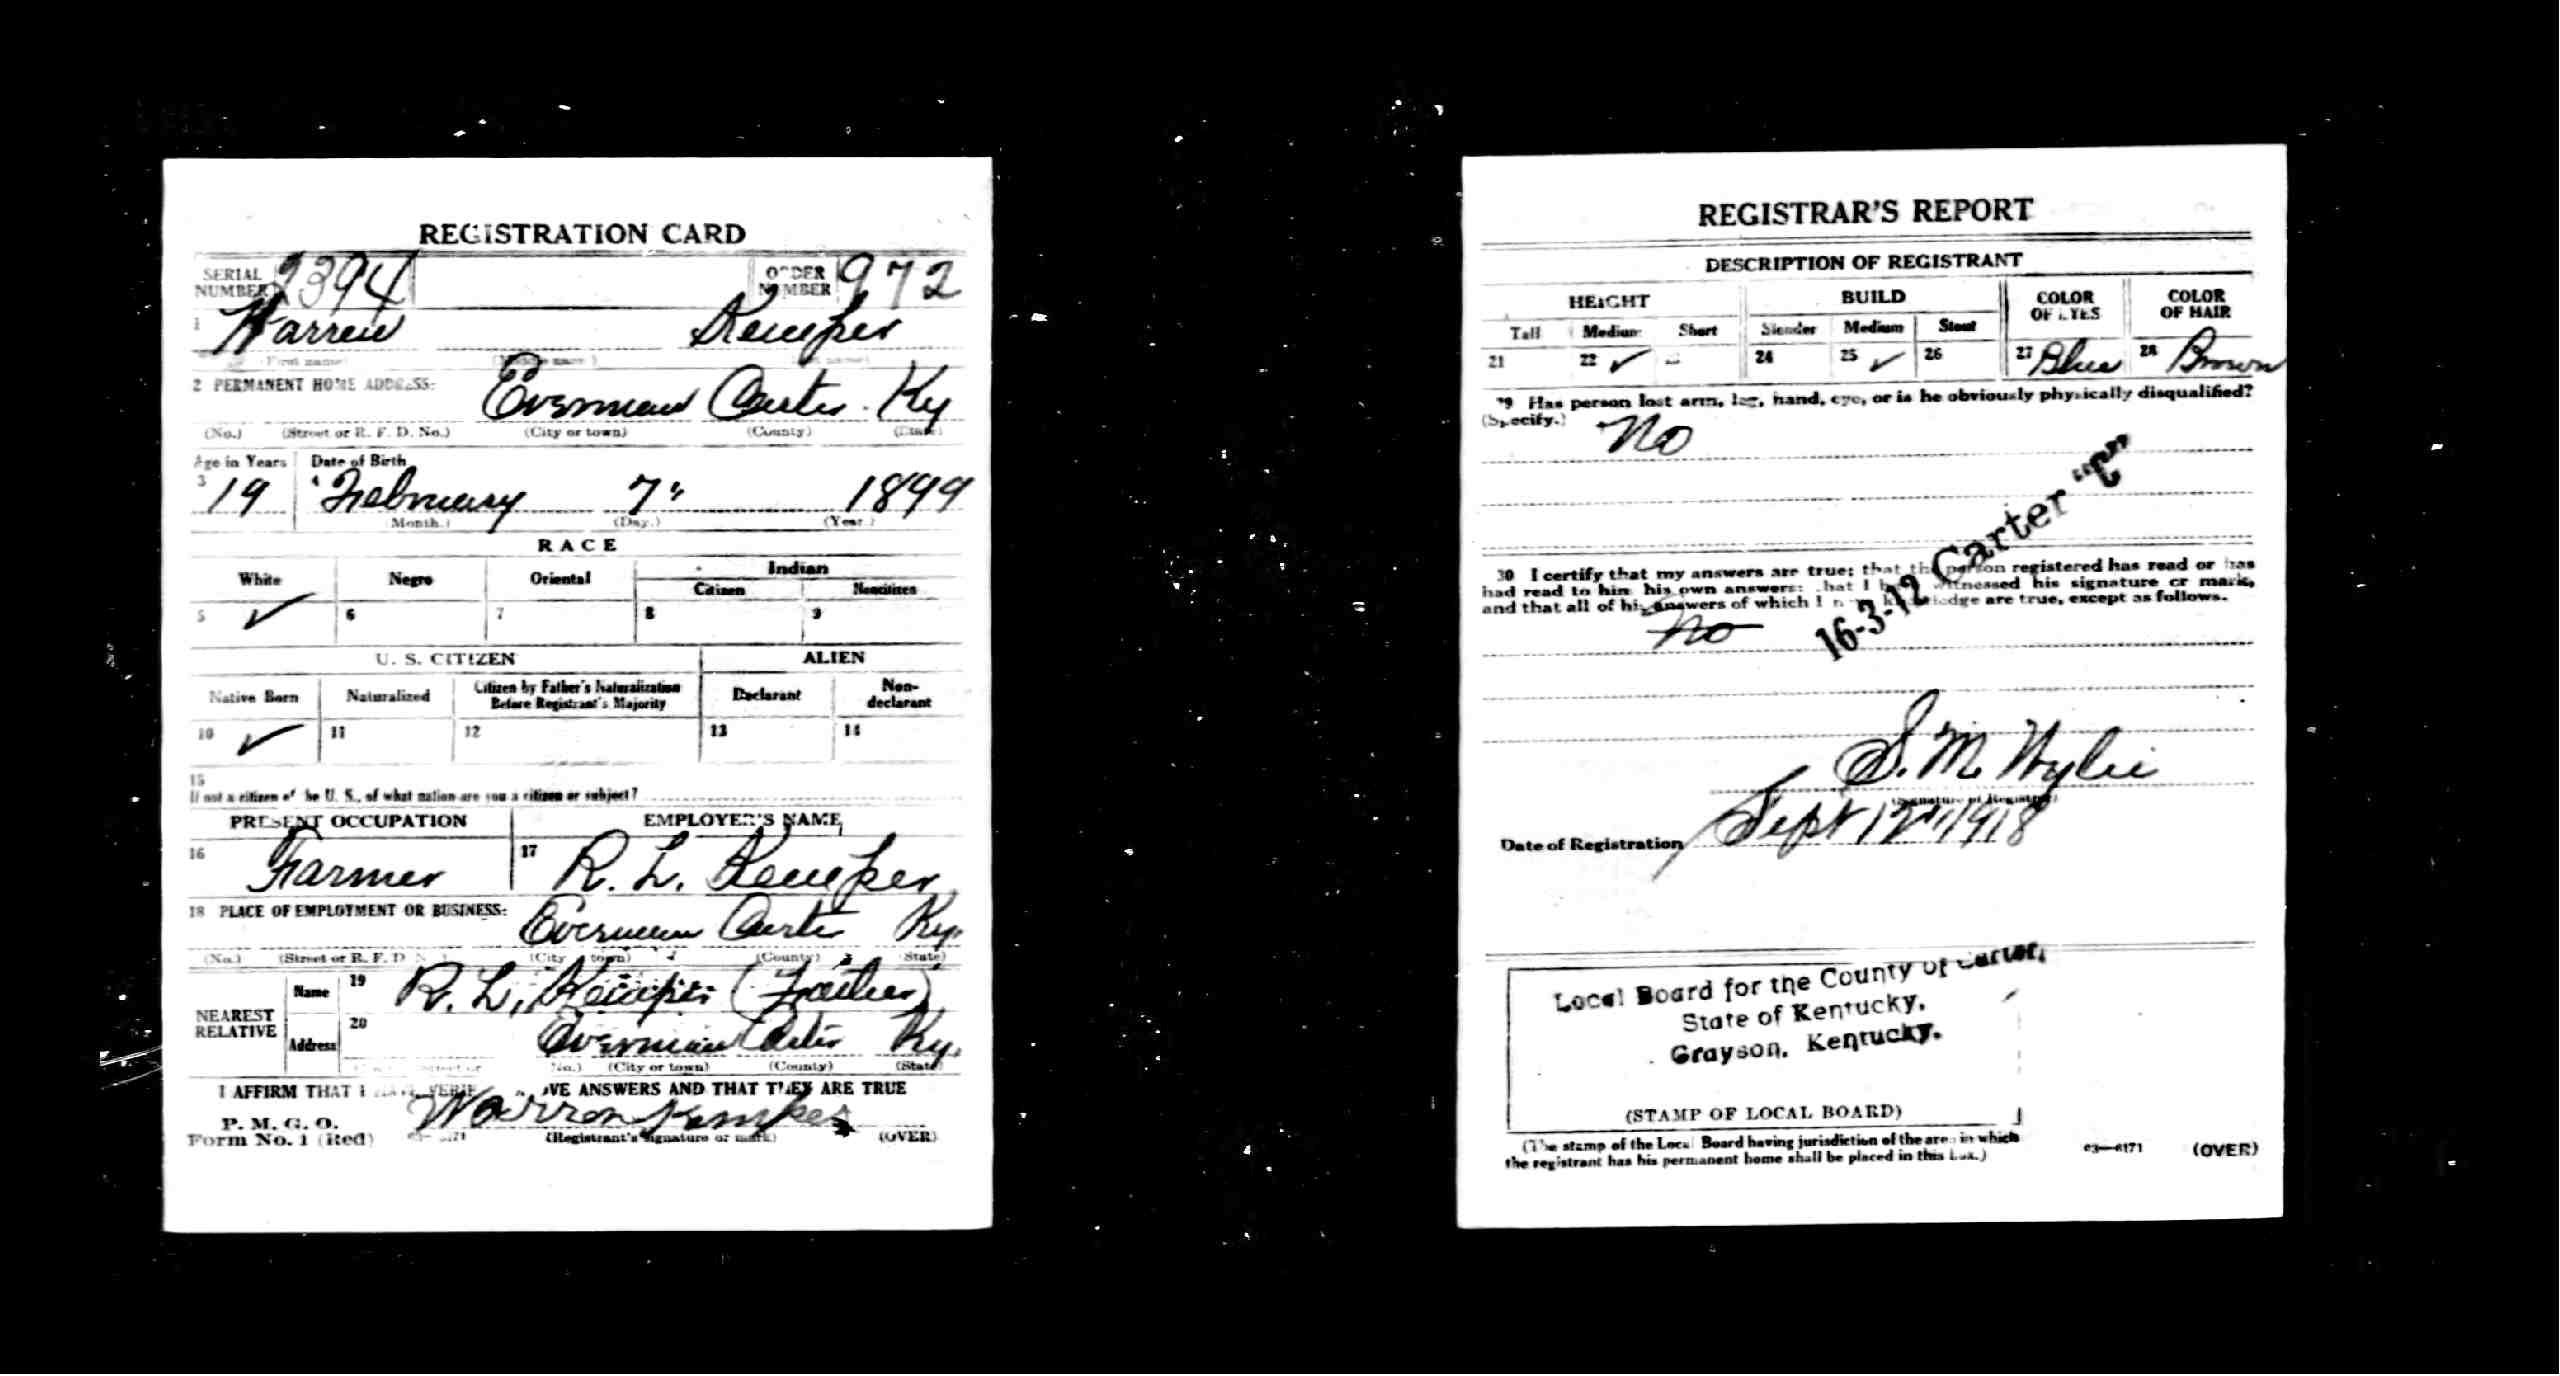 REGISTRATION CARD
SERIAL NUMBER 2394 ORDER NUMBER 972
1 Warren Kemper
(First name) (Middle name) (Last name)
2 PERMANENT HOME ADDRESS:
Everman Carter Ky
(No.) (Street or R. F. D. No.) (City or town) (County) (State)
Age in Years Date of Birth
3 19 4 February 7" 1899
(Month.) (Day.) (Year.)
RACE
White Negro Oriental Indian
Citizen Noncitizen
5 ✓ 6 7 8 9
U. S. CITIZEN ALIEN
Native Born Naturalized Citizen by Father's Naturalization Before Registrant's Majority Declarant Non-declarant
10 ✓ 11 12 13 14
15
If not a citizen of the U. S., of what nation are you a citizen or subject?
PRESENT OCCUPATION EMPLOYER'S NAME
16 Farmer 17 R. L. Kemper
18 PLACE OF EMPLOYMENT OR BUSINESS:
Everman Carter Ky.
(No.) (Street or R. F. D. No.) (City or town) (County) (State)
NEAREST RELATIVE
Name 19 R. L. Kemper (Father)
Address 20 Everman Carter Ky.
(No.) (Street or R. F. D. No.) (City or town) (County) (State)
I AFFIRM THAT I HAVE VERIFIED ABOVE ANSWERS AND THAT THEY ARE TRUE
P. M. G. O.
Form No. 1 (Red) 03-6171 Warren Kemper
(Registrant's signature or mark) (OVER)
REGISTRAR'S REPORT
DESCRIPTION OF REGISTRANT
HEIGHT BUILD COLOR OF EYES COLOR OF HAIR
Tall Medium Short Slender Medium Stout
21 22 ✓ 23 24 25 ✓ 26 27 Blue 28 Brown
29 Has person lost arm, leg, hand, eye, or is he obviously physically disqualified?
(Specify.) No
16-3-12 Carter "C"
30 I certify that my answers are true; that the person registered has read or has
had read to him his own answers; that I have witnessed his signature or mark,
and that all of his answers of which I have knowledge are true, except as follows.
No
S. M. Wylie
(Signature of Registrar)
Date of Registration Sept 12" 1918
Local Board for the County of Carter,
State of Kentucky,
Grayson, Kentucky.
(STAMP OF LOCAL BOARD)
(The stamp of the Local Board having jurisdiction of the area in which
the registrant has his permanent home shall be placed in this box.)
03-6171 (OVER)